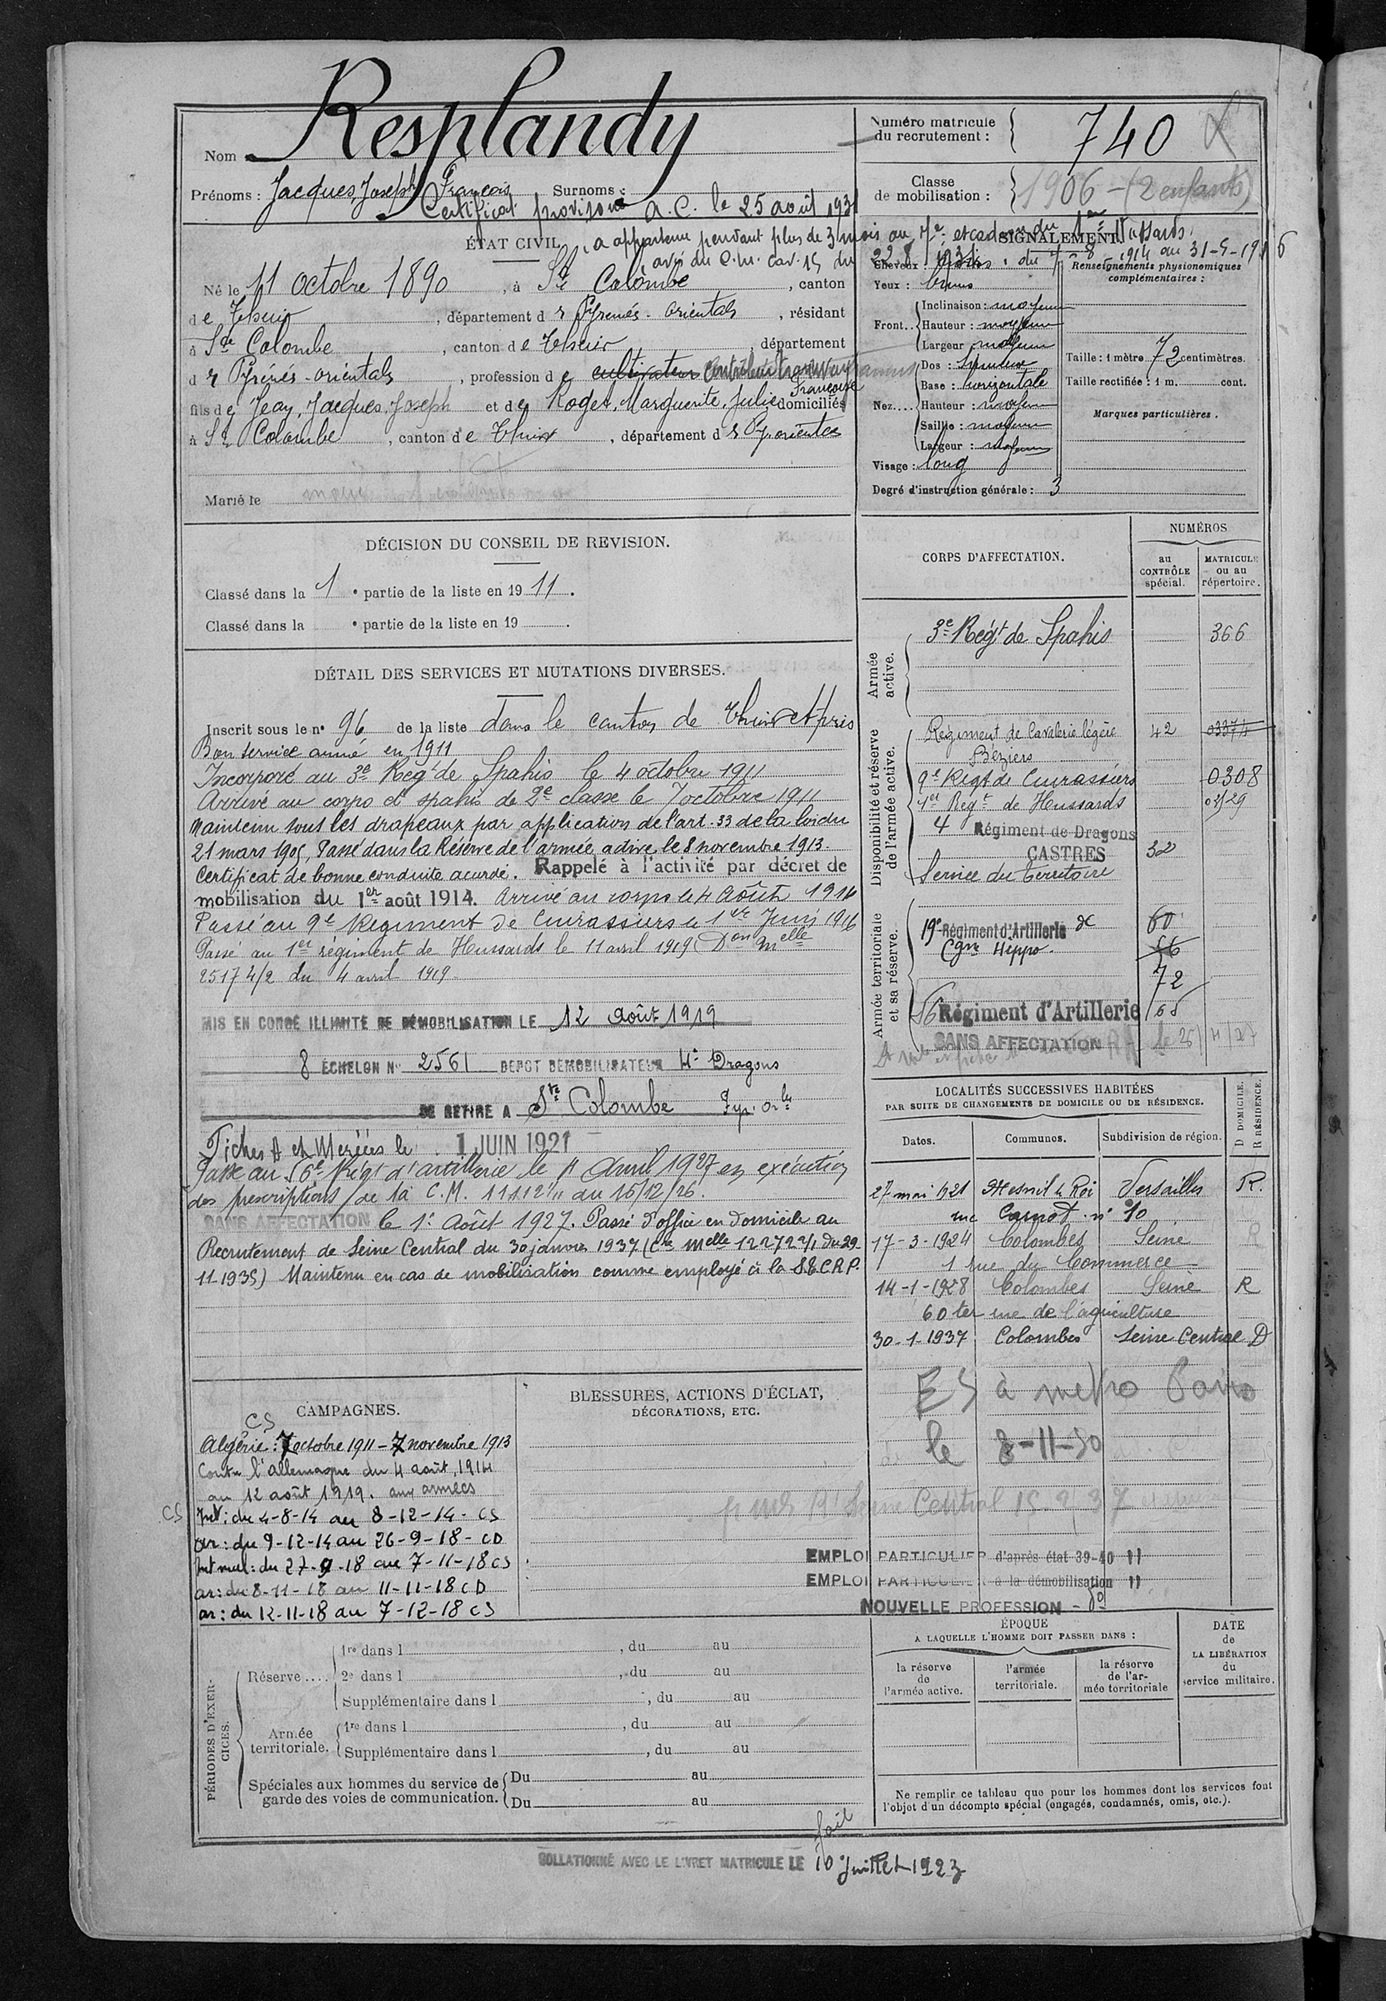 Nom Resplandy
Prénoms : Jacques Joseph François Surnoms :
Certificat provisoire A.C. le 25 août 1931
ÉTAT CIVIL.
a appartenu pendant plus de 3 mois au
Né le 11 octobre 1890, à Ste Colombe, canton
de Thuir, département des Pyrénées-orientales, résidant
à Ste Colombe, canton de Thuir, département
des Pyrénées-orientales, profession de cultivateur Contrôleur tramways
fils de Jean, Jacques, Joseph et de Roger, Marguerite, Julie Françoise domiciliés
à Ste Colombe, canton de Thuir, département des Py orientales
Marié le
DÉCISION DU CONSEIL DE REVISION.
Classé dans la 1 e partie de la liste en 1911.
Classé dans la e partie de la liste en 19
DÉTAIL DES SERVICES ET MUTATIONS DIVERSES.
Inscrit sous le n° 96 de la liste dans le canton de Thuir
Bon service armé en 1911
Incorporé au 3e Régt de Spahis le 4 octobre 1911
Arrivé au corps et spahis de 2e classe le 7 octobre 1911
Maintenu sous les drapeaux par application de l'art. 33 de la loi du
21 mars 1905, Passé dans la Réserve de l'armée active le 8 novembre 1913.
Certificat de bonne conduite accordé. Rappelé à l'activité par décret de
mobilisation du 1er août 1914. Arrivé au corps le 4 août 1914
Passé au 9e Régiment de Cuirassiers le 1er Juin 1916
Passé au 1er régiment de Hussards le 11 avril 1919 (Don melle
25174/2 du 4 avril 1919
MIS EN CONGÉ ILLIMITÉ DE DÉMOBILISATION LE 12 Août 1919
8 ÉCHELON N° 2561 DEPOT DEMOBILISATEUR 4e Dragons
SE RETIRE A Ste Colombe Pyr. Orles
Fiches A et M créées le 1 JUIN 1921
Passé au 56e Régt d'artillerie le 1 Avril 1927 en exécution
des prescriptions de la C.M. 11112 1/11 du 15/12/26.
SANS AFFECTATION le 1er Août 1927. Passé d'office en domicile au
Recrutement de Seine Central du 30 janvier 1937 (Cre melle 12272 2/1 du 29
11 1935) Maintenu en cas de mobilisation comme employé à la S.T.C.R.P.
CAMPAGNES.
CS
Algérie : 7 octobre 1911 - 7 novembre 1913
Contre l'Allemagne du 4 août 1914
au 12 août 1919. aux armées
CS Int : du 4-8-14 au 8-12-14 - CS
ar : du 9-12-14 au 26-9-18 - CD
Int mal : du 27-9-18 au 7-11-18 CS
ar : du 8-11-18 au 11-11-18 CD
ar : du 12-11-18 au 7-12-18 CS
BLESSURES, ACTIONS D'ÉCLAT,
DÉCORATIONS, ETC.
PÉRIODES D'EXERCICES.
Réserve .... 1re dans l , du au
2e dans l , du au
Supplémentaire dans l , du au
Armée territoriale. 1re dans l , du au
Supplémentaire dans l , du au
Spéciales aux hommes du service de garde des voies de communication. Du au
Du au
Numéro matricule du recrutement : 740
Classe de mobilisation : 1906 - (2 enfants)
1er Hussards
SIGNALEMENT.
du 4-8-1914 au 31-5-1916
Cheveux :
Yeux : bruns
Front.. Inclinaison : moyen
Hauteur : moyen
Largeur : moyen
Nez.... Dos : sinueux
Base : horizontale
Hauteur : moyen
Saillie : moyenne
Largeur : moyenne
Visage : long
Degré d'instruction générale : 3
Renseignements physionomiques complémentaires :
Taille : 1 mètre 72 centimètres.
Taille rectifiée : 1 m. cent.
Marques particulières.
CORPS D'AFFECTATION.
NUMÉROS
au CONTRÔLE spécial.
MATRICULE ou au répertoire.
Armée active.
3e Régt de Spahis 366
Disponibilité et réserve de l'armée active.
Régiment de Cavalerie légère 42 03374
Béziers
9e Régt de Cuirassiers 0308
1er Régt de Hussards
4 Régiment de Dragons
CASTRES 32
Service du Territoire
Armée territoriale et sa réserve.
19e Régiment d'Artillerie de 60
Cgne Hippo. 56
72
56 Régiment d'Artillerie
SANS AFFECTATION
LOCALITÉS SUCCESSIVES HABITÉES
PAR SUITE DE CHANGEMENTS DE DOMICILE OU DE RÉSIDENCE.
Dates. Communes. Subdivision de région. D DOMICILE. R RÉSIDENCE.
27 mai 1921 Mesnil le Roi Versailles R.
rue Carnot n° 10
17-3-1924 Colombes Seine R
1 rue du Commerce
14-1-1928 Colombes Seine R
60 ter rue de l'agriculture
30-1-1937 Colombes Seine Central D
ES à metro Paris
le 8-11-30
Seine Central 15.2.37
EMPLOI PARTICULIER d'après état 39-40 11
EMPLOI PARTICULIER à la démobilisation 11
NOUVELLE PROFESSION - do
ÉPOQUE
A LAQUELLE L'HOMME DOIT PASSER DANS :
la réserve de l'armée active.
l'armée territoriale.
la réserve de l'armée territoriale
DATE de LA LIBÉRATION du service militaire.
Ne remplir ce tableau que pour les hommes dont les services font
l'objet d'un décompte spécial (engagés, condamnés, omis, etc.).
fait
COLLATIONNÉ AVEC LE LIVRET MATRICULE LE 10 Juillet 1923